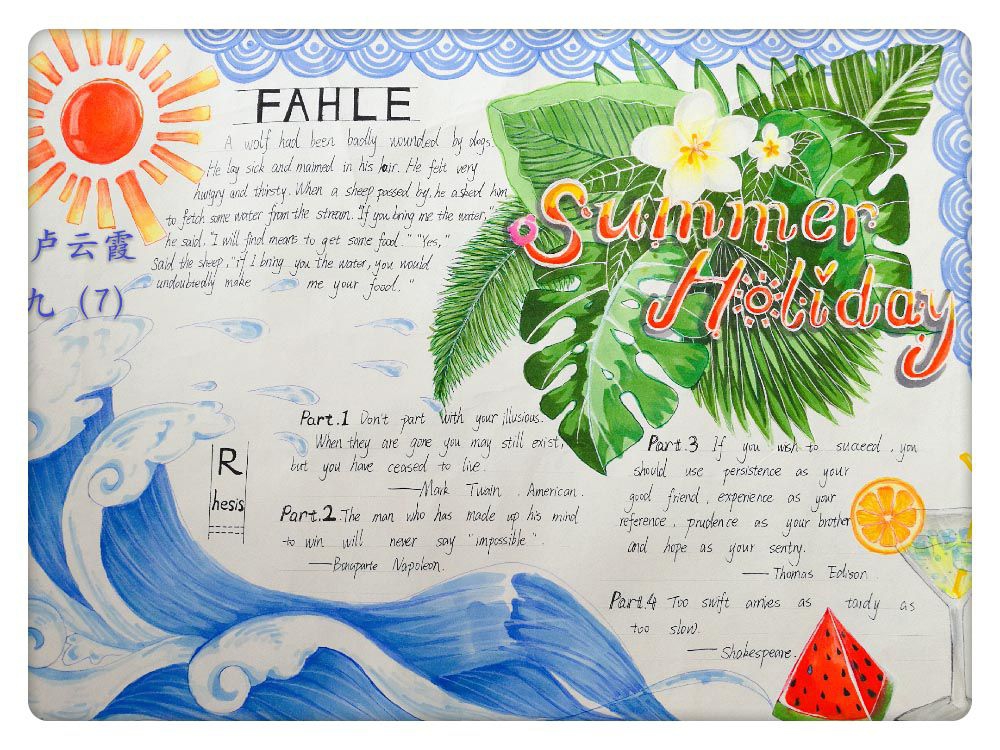 FAHLE
A wolf had been badly wounded by dogs.
He lay sick and maimed in his lair. He felt very
hungry and thirsty. When a sheep passed by, he asked him
to fetch some water from the stream. "If you bring me the water,"
he said, "I will find means to get some food." "Yes,"
said the sheep, "if I bring you the water, you would
undoubtedly make me your food."
卢云霞
九 (7)
Summer
Holiday
R
hesis
Part.1 Don't part with your illusions.
When they are gone you may still exist,
but you have ceased to live.
—Mark Twain . American.
Part.2 The man who has made up his mind
to win will never say "impossible".
—Bonaparte Napoleon.
Part.3 If you wish to succeed, you
should use persistence as your
good friend, experience as your
reference, prudence as your brother
and hope as your sentry.
—Thomas Edison.
Part.4 Too swift arrives as tardy as
too slow.
—Shakespeare.